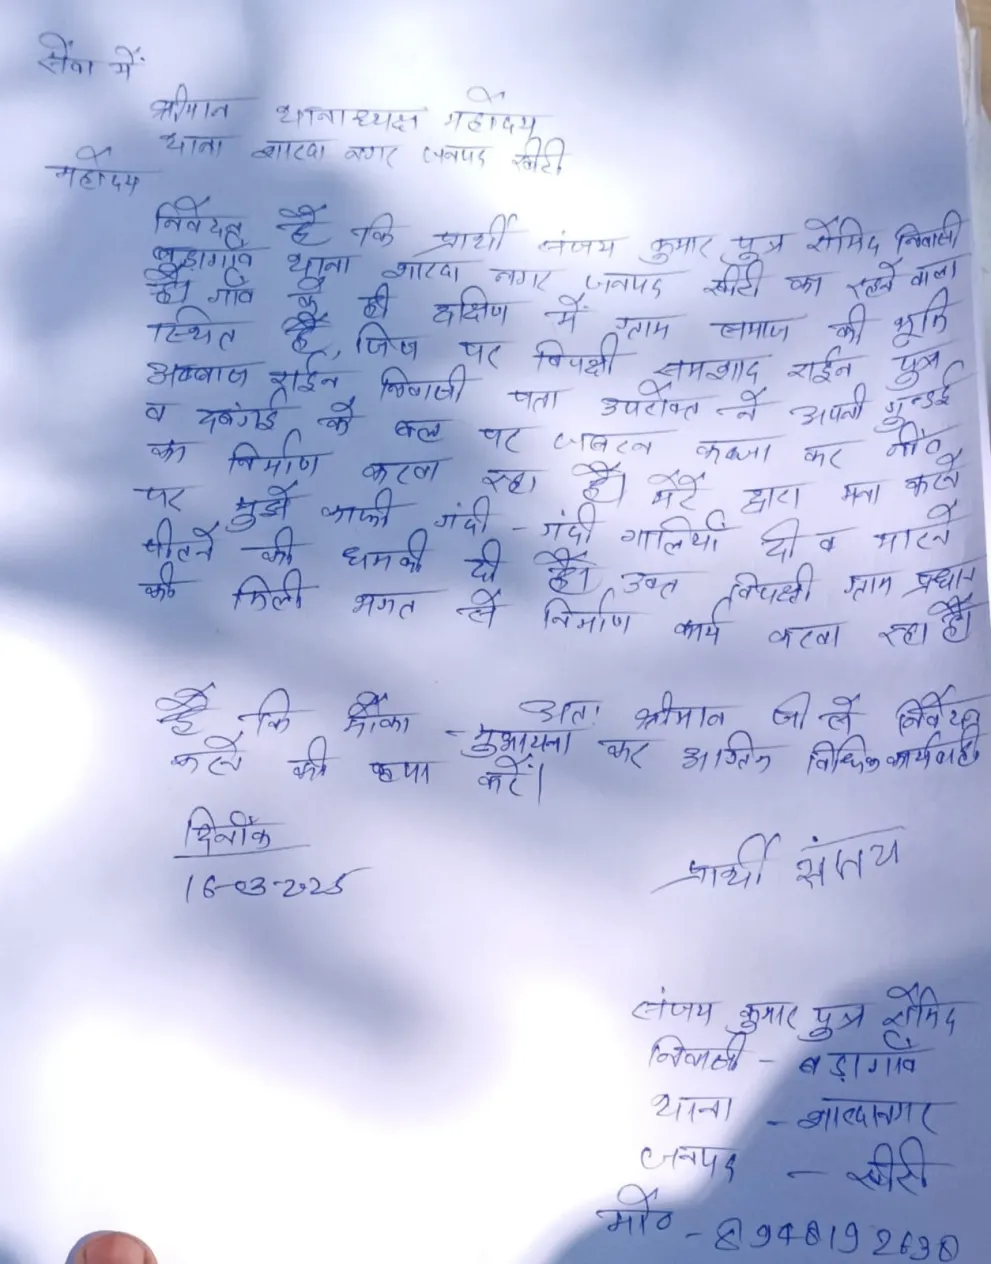 सेवा में
श्रीमान थानाध्यक्ष महोदय
थाना शारदा नगर जनपद खीरी
महोदय
निवेदन है कि प्रार्थी संजय कुमार पुत्र निवासी
बड़ागांव थाना शारदा नगर जनपद खीरी का रहने वाला
है। गांव के ही दक्षिण में ग्राम समाज की भूमि
स्थित है, जिस पर विपक्षी समशाद राईन पुत्र
राईन निवासी पता उपरोक्त ने अपनी गुन्डई
व दबंगई के बल पर जबरन कब्जा कर नींव
का निर्माण करवा रहा है। मेरे द्वारा मना करने
पर मुझे काफी गंदी - गंदी गालियाँ दी व मारने
पीटने की धमकी दी है। उक्त विपक्षी ग्राम प्रधान
की मिली भगत से निर्माण कार्य करवा रहा है।
अतः श्रीमान जी से निवेदन
है कि मौका - मुआयना कर विधिक कार्यवाही
करने की कृपा करें।
दिनाँक
16-03-2025
प्रार्थी संजय
संजय कुमार पुत्र
निवासी - बड़ागांव
थाना - शारदानगर
जनपद - खीरी
मो०